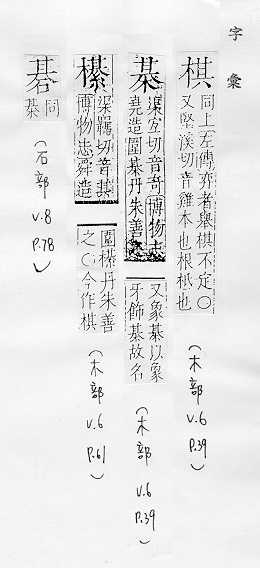 字彙
棋 同上左傳弈者舉棋不定○
又堅溪切音雞本也根柢也
(木部 v.6 p.39)
棊 渠宜切音奇博物志
堯造圍棊丹朱善
又象棊以象
牙飾棊故名
(木部 v.6 p.39)
櫀 渠羈切音其
博物志舜造
圍櫀丹朱善
之○今作棋
(木部 v.6 p.61)
碁 同
棊
(石部 v.8 p.78)